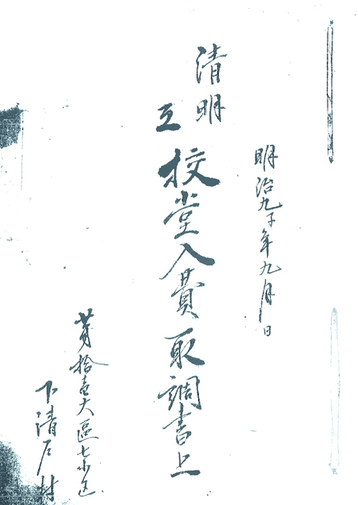 明治九子年九月 日
清明
校堂入費取調書上
第拾壱大區七小区
下清戸村